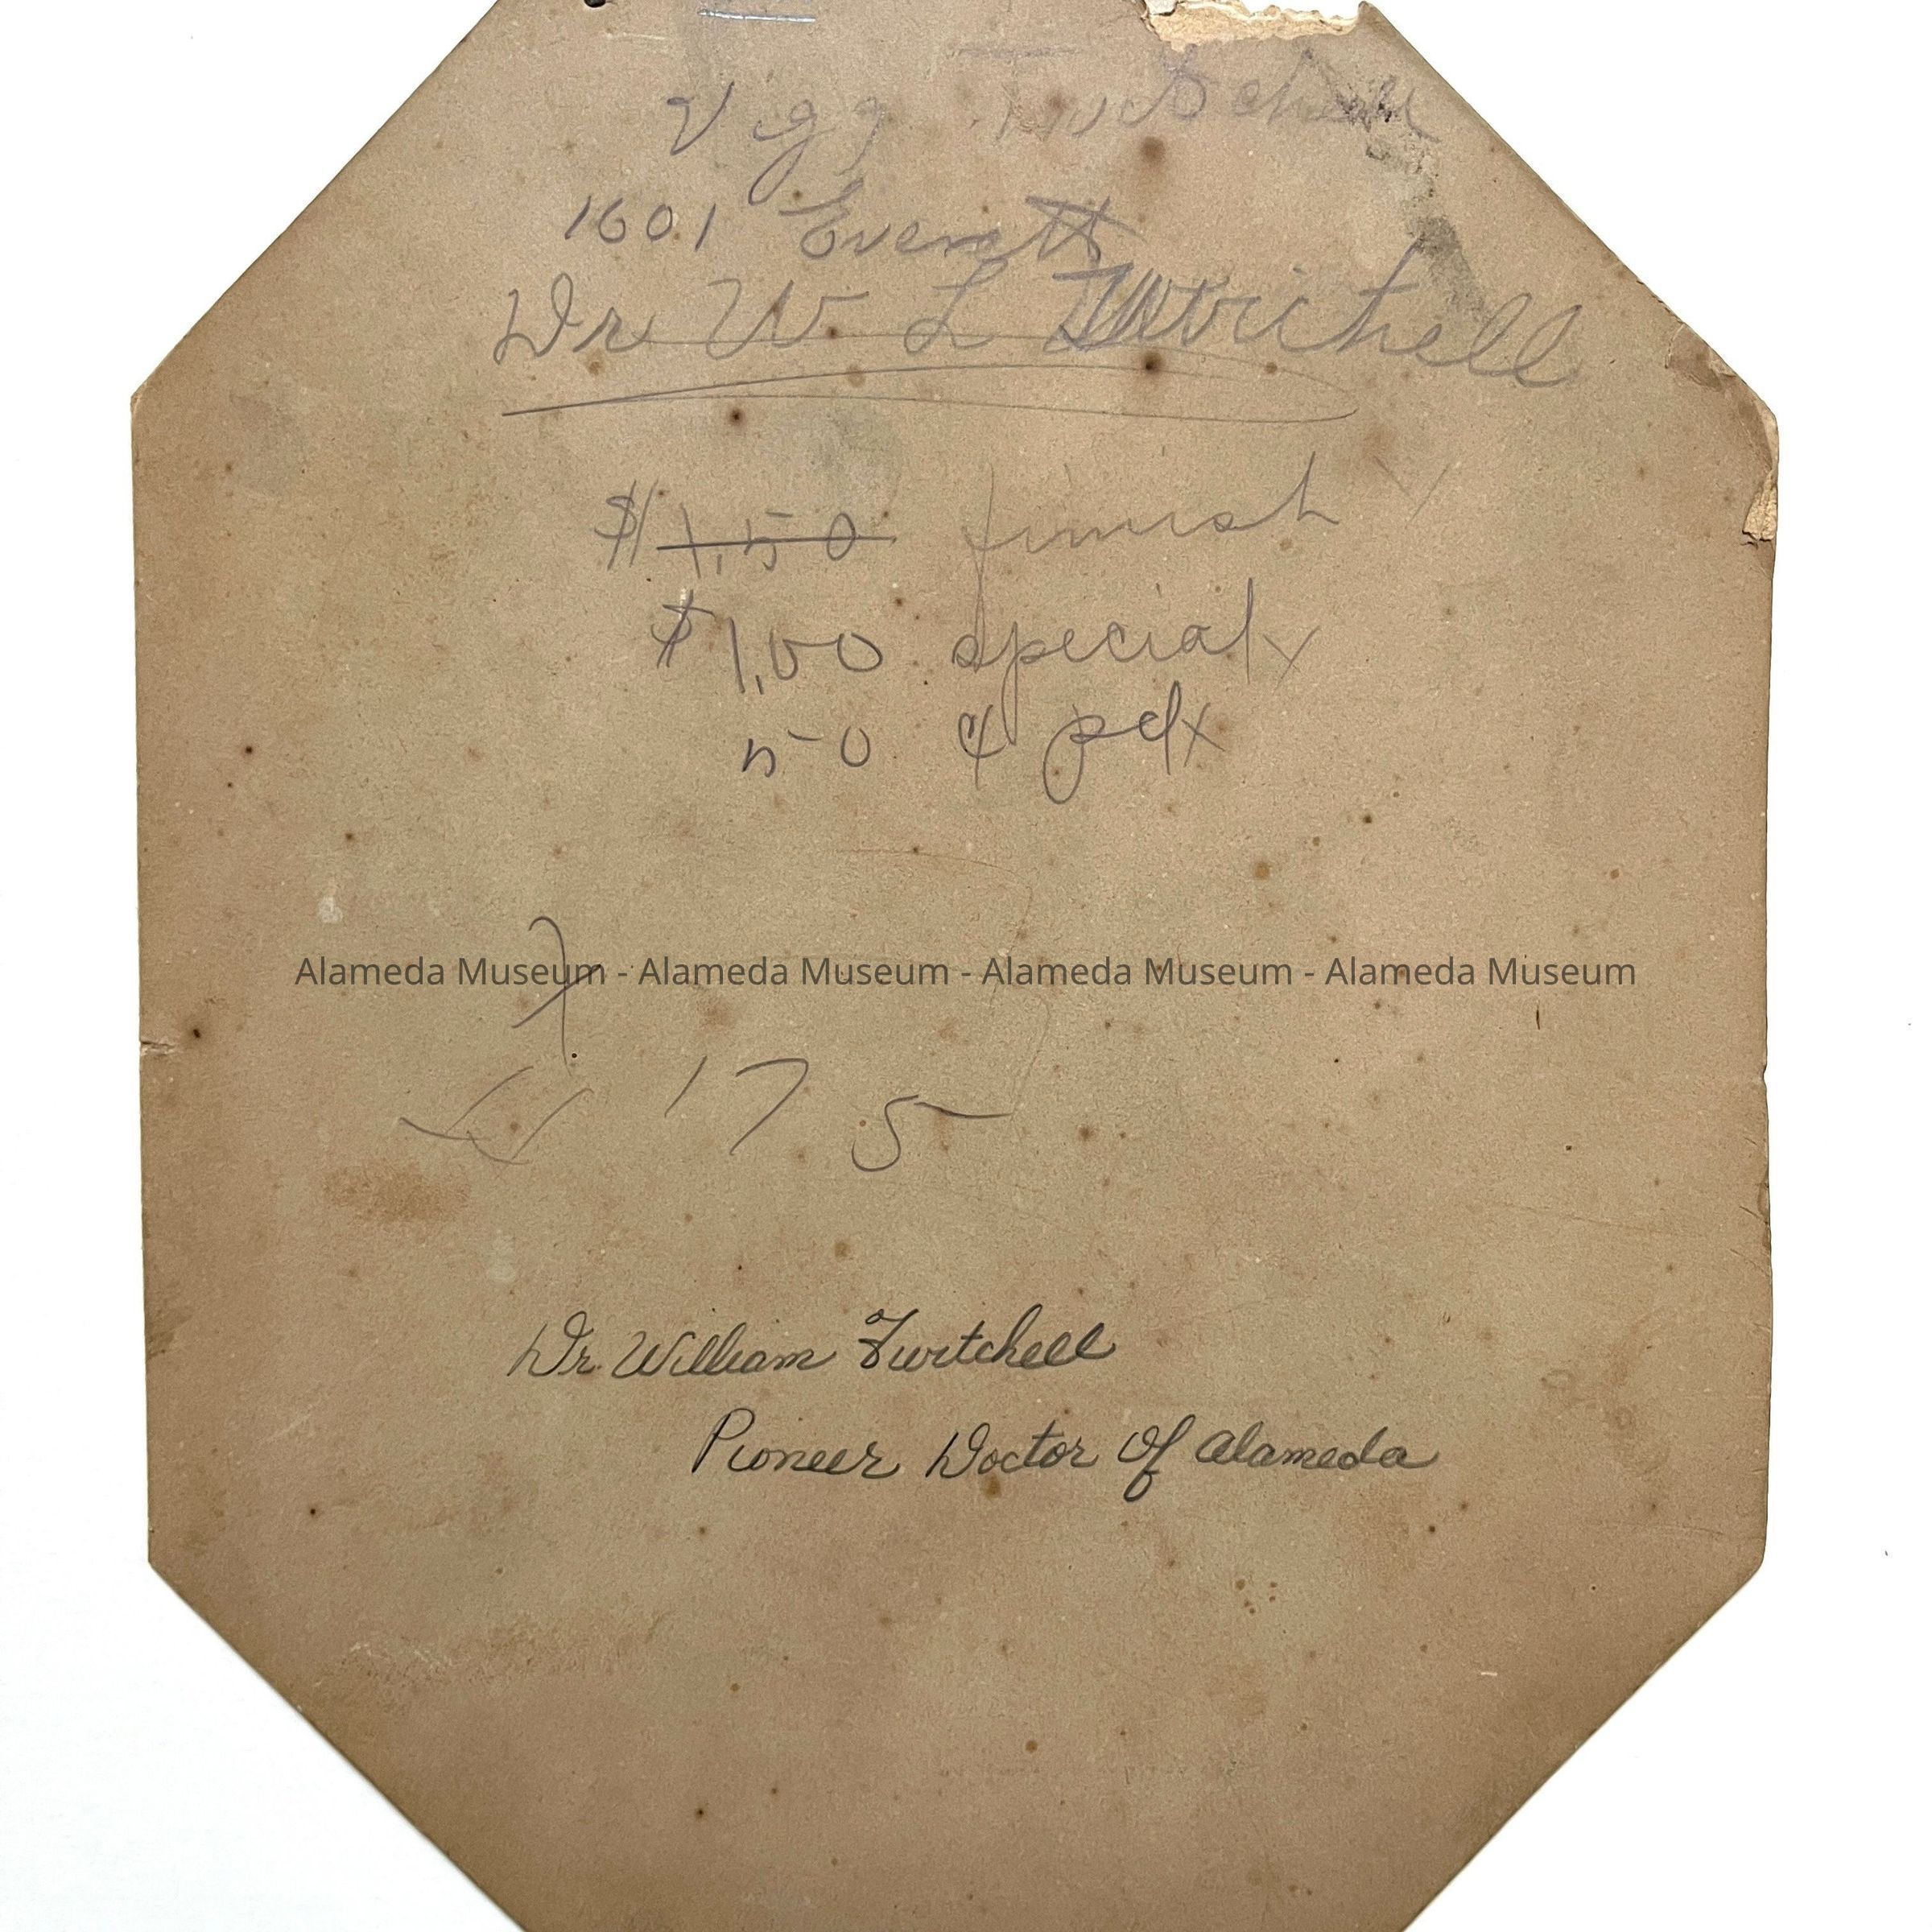 1601 Everett
Dr W L Twitchell
$1.50 finish
$1.00 special x
50 ¢ pd x
Alameda Museum - Alameda Museum - Alameda Museum - Alameda Museum
175
Dr. William Twitchell
Pioneer Doctor Of Alameda